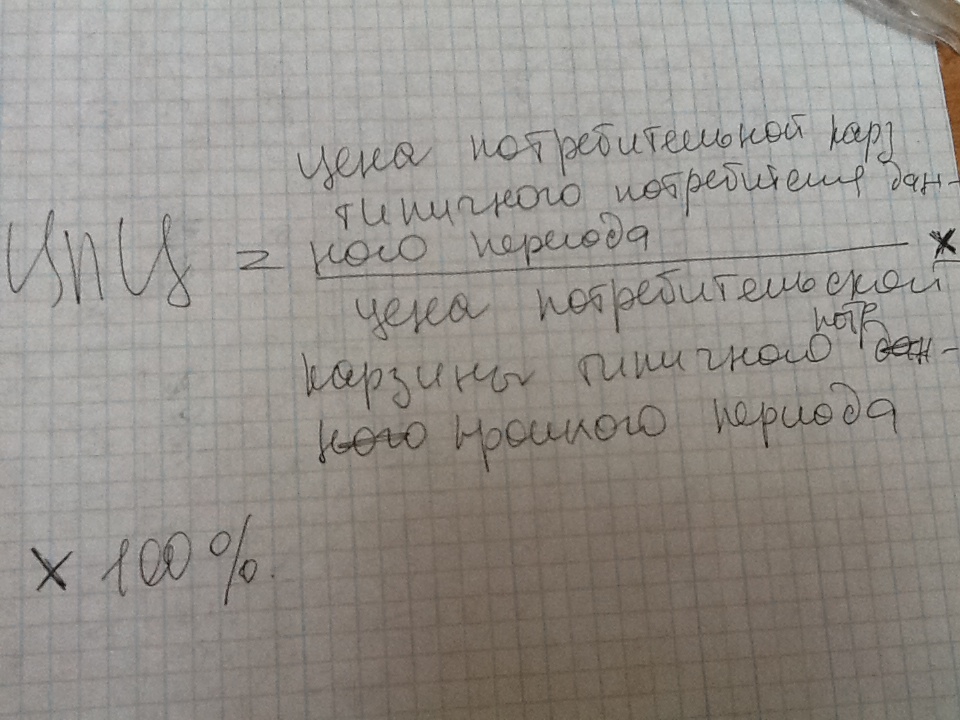 цена потребительной карз
типичного потребителя дан-
ИПЦ = ного периода ×
цена потребительской
карзины типичного потр
прошлого периода
× 100%.